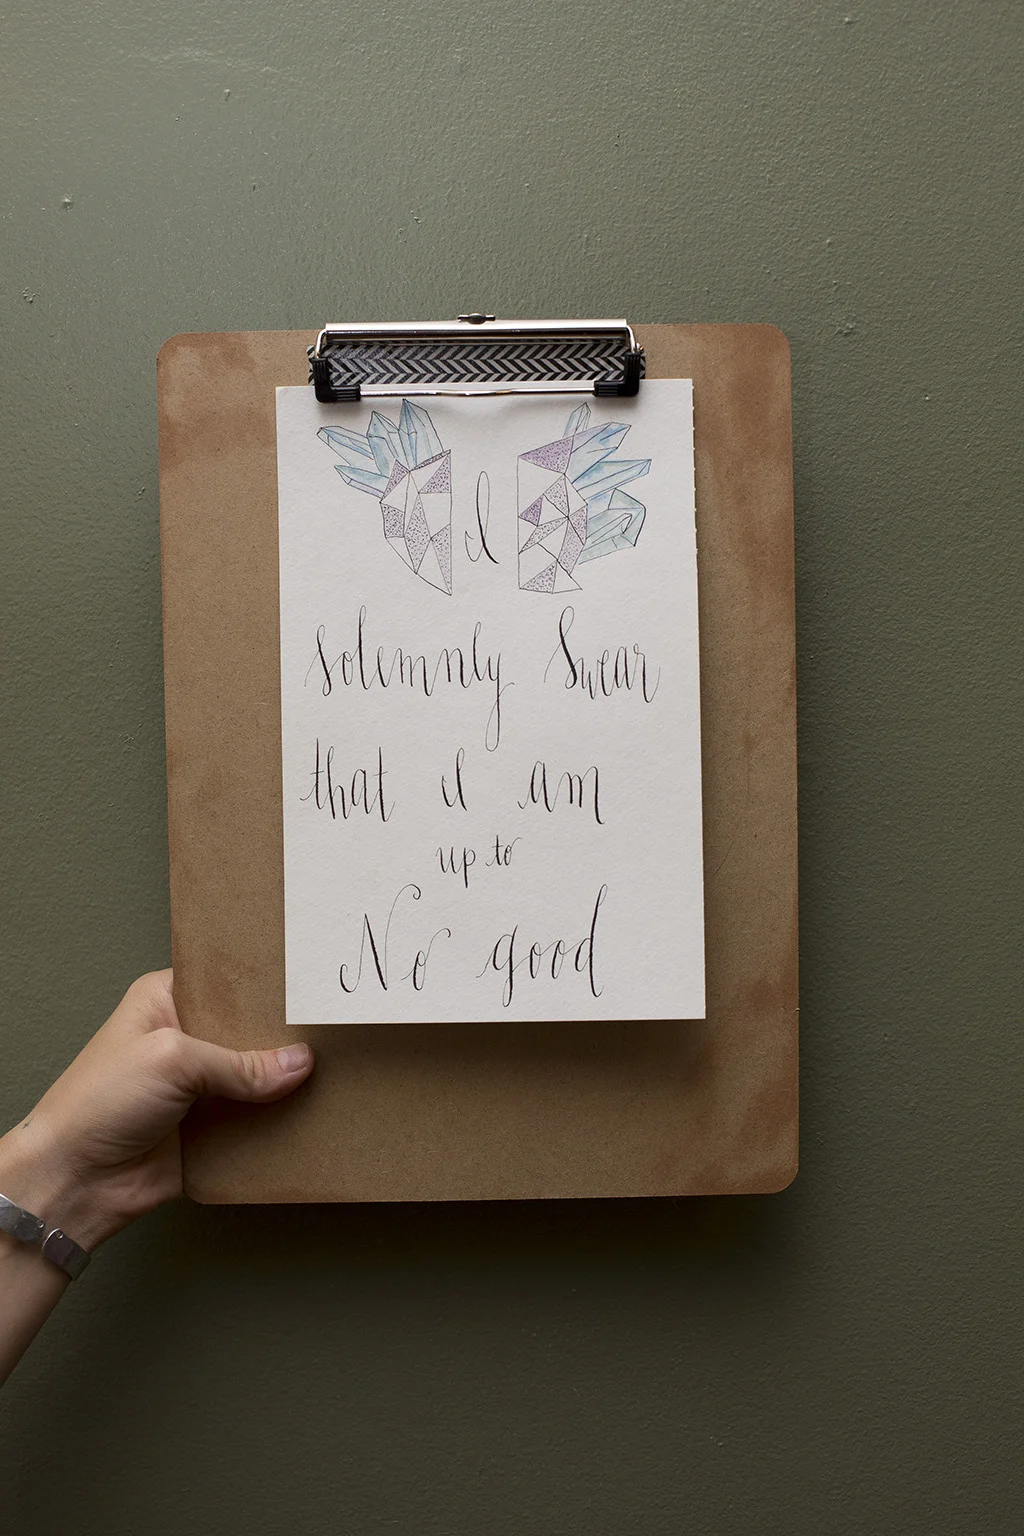 I
Solemnly Swear
that I am
up to
No good